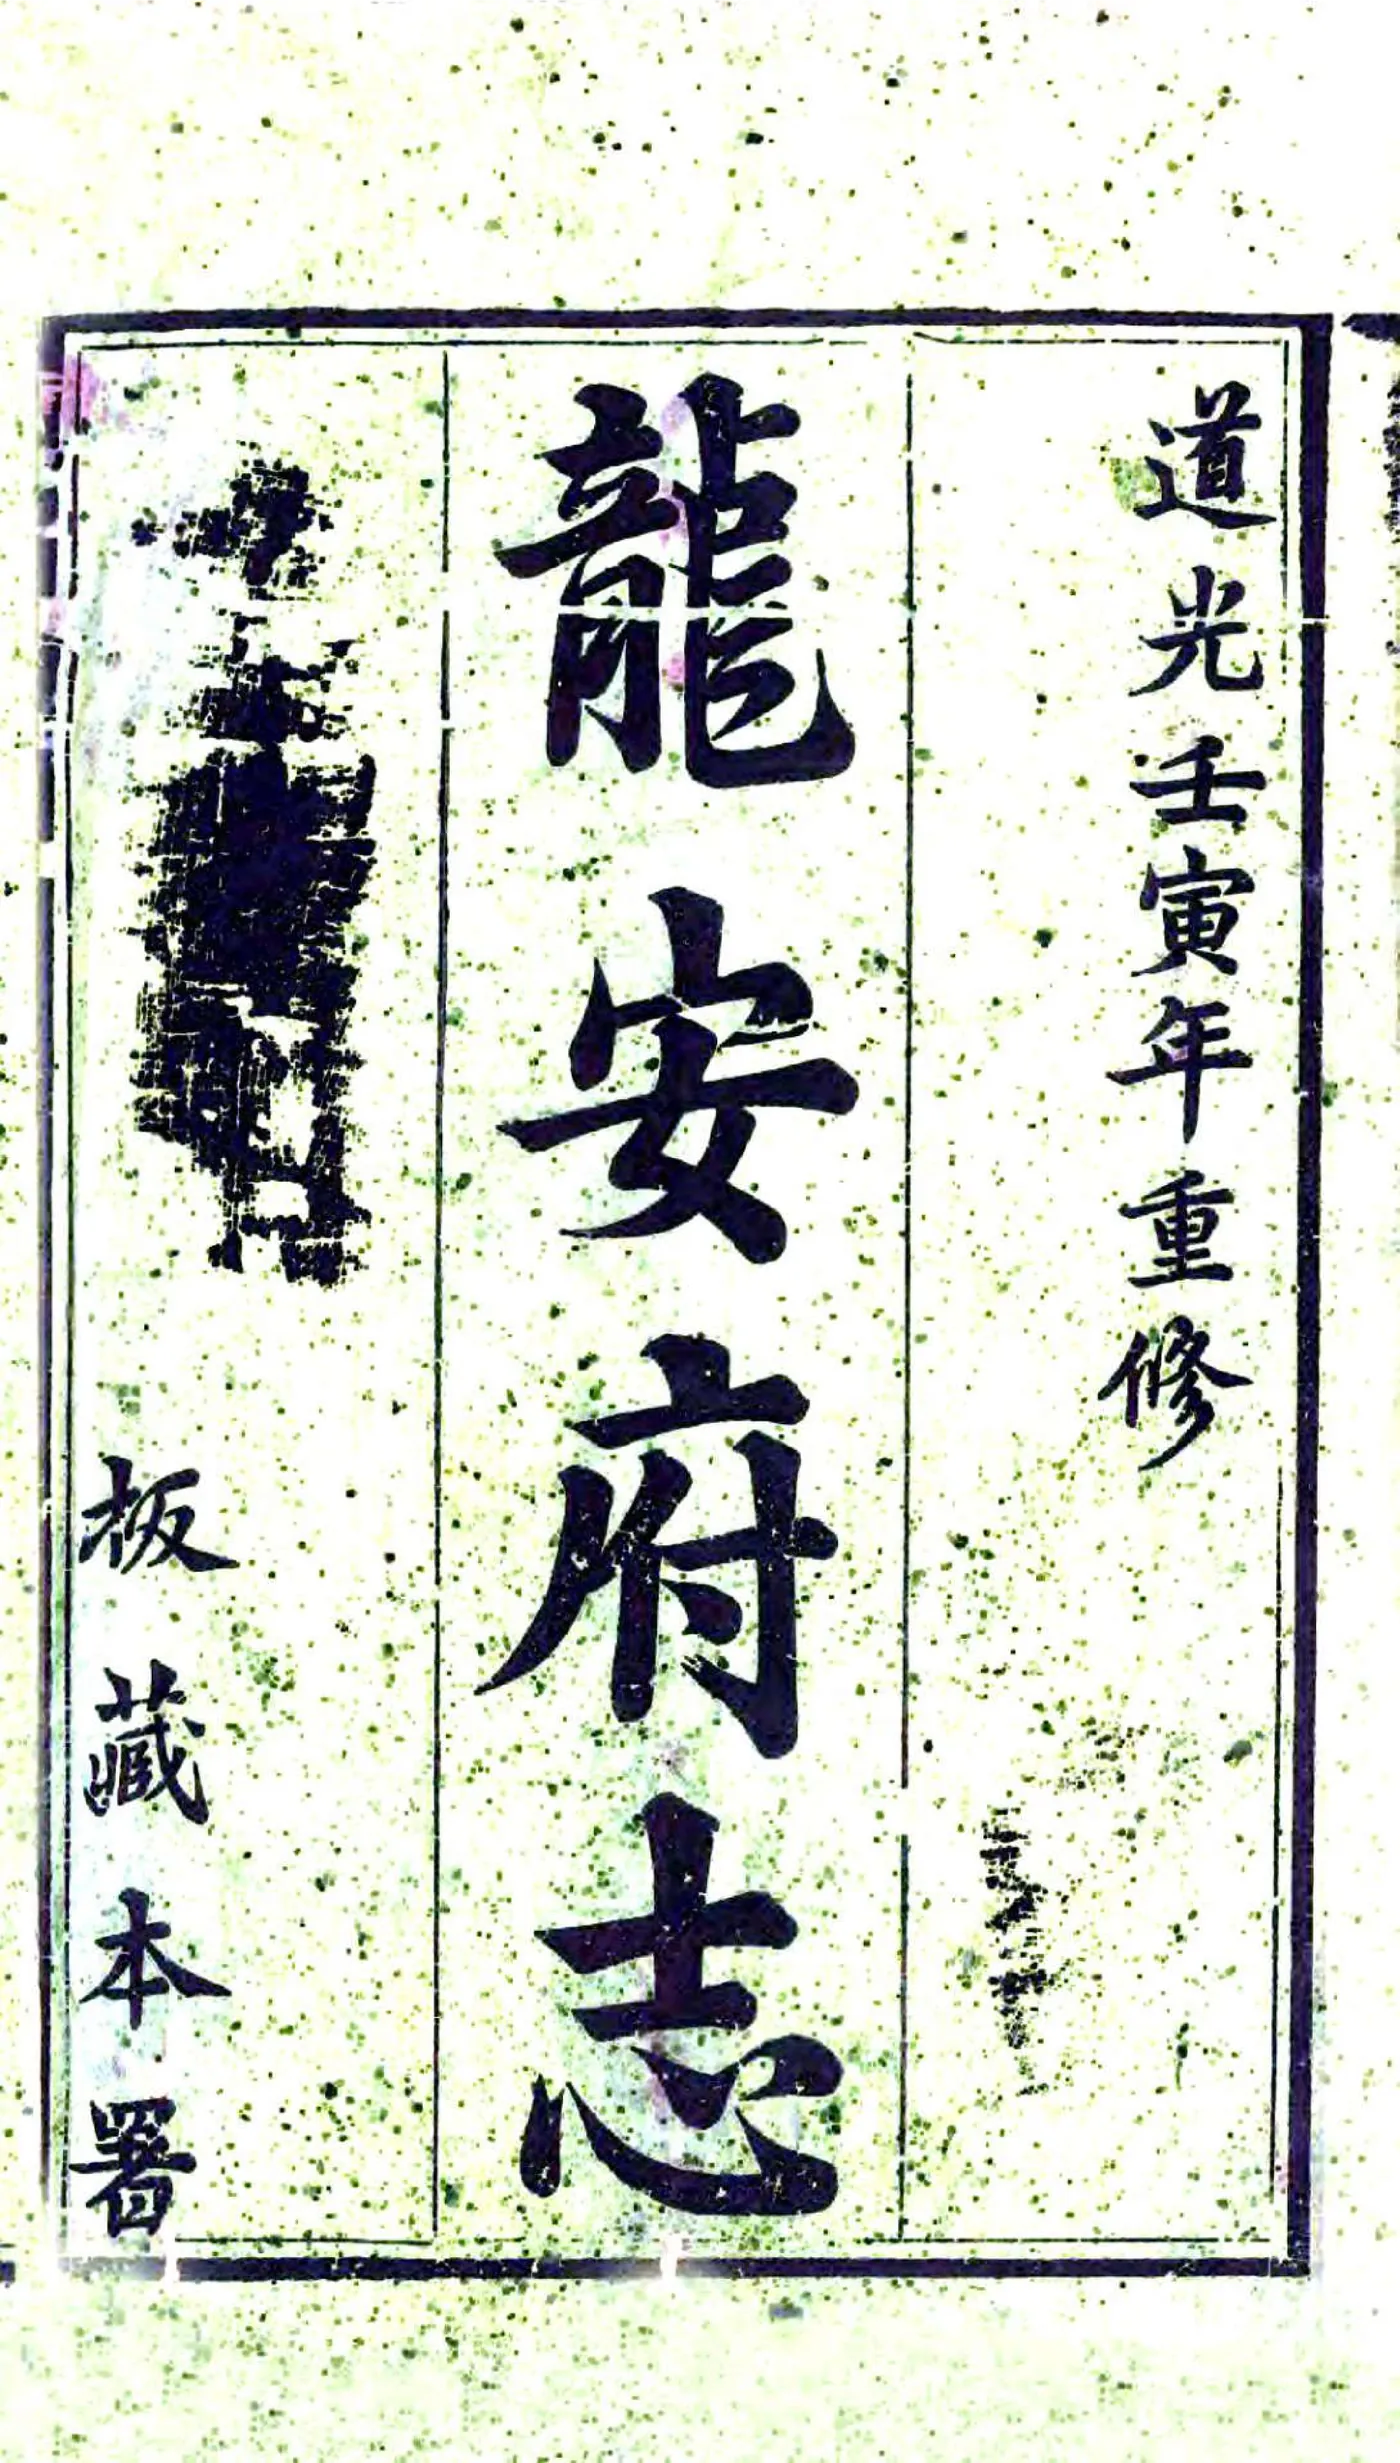 道光壬寅年重修
龍安府志
板藏本署